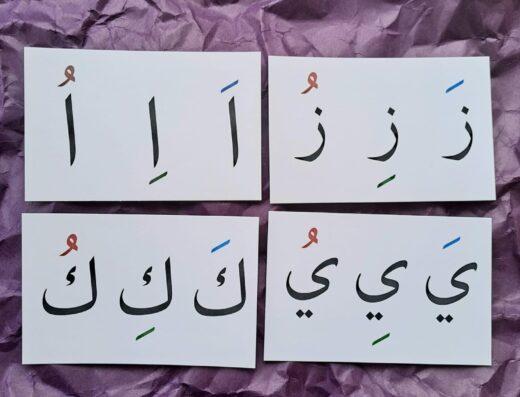 اَ اِ اُ
زَ زِ زُ
كَ كِ كُ
يَ يِ يُ